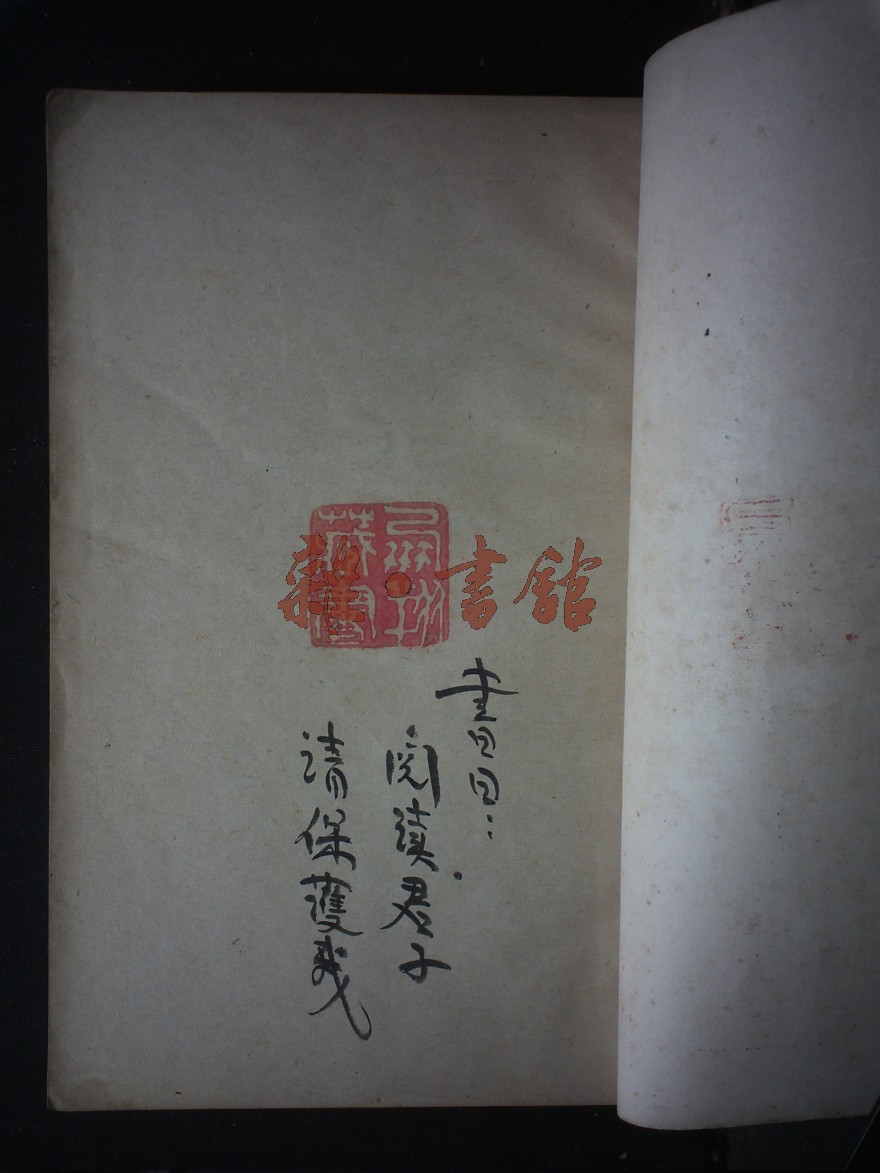 雜·書館
書曰：
閱讀君子
請保護我